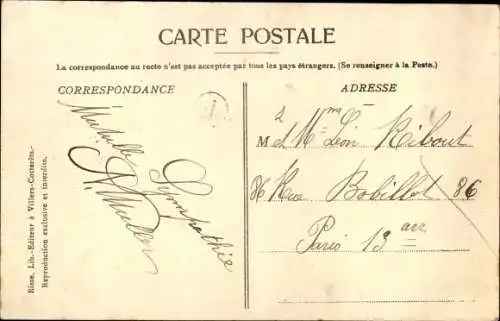 CARTE POSTALE
La correspondance au recto n'est pas acceptée par tous les pays étrangers. (Se renseigner à la Poste.)
CORRESPONDANCE
Sympathie
N. Muller
Risse, Lib.-Editeur à Villers-Cotterêts.-
Reproduction exclusive et interdite.
ADRESSE
M et Mme Léon Ribout
86 Rue Bobillot 86
Paris 13 arr